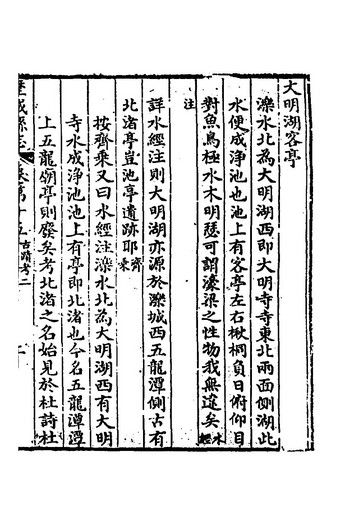 大明湖客亭
濼水北為大明湖西即大明寺寺東北兩面側湖此
水便成淨池也池上有客亭左右楸桐負日俯仰目
對魚鳥極水木明瑟可謂濠梁之性物我無違矣水經
注
詳水經注則大明湖亦源於濼城西五龍潭側古有
北渚亭豈池亭遺跡耶齊乘
按齊乘又曰水經注濼水北為大明湖西有大明
寺水成淨池池上有亭即北渚也今名五龍潭潭
上五龍廟亭則廢矣考北渚之名始見於杜詩杜
歷城縣志 卷第十五 古蹟考二